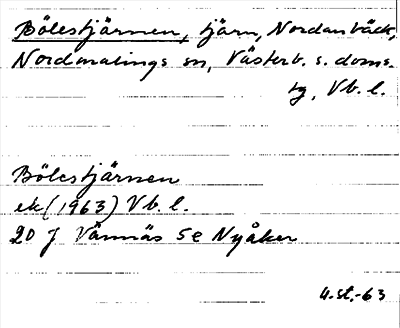 Bölestjärnen, tjärn, Nordanbäck,
Nordmalings sn, Västerb. s. doms.
tg, Vb. l.
Bölestjärnen
ek (1963) Vb. l.
20 J Vännäs 5e Nyåker
U.st.-63